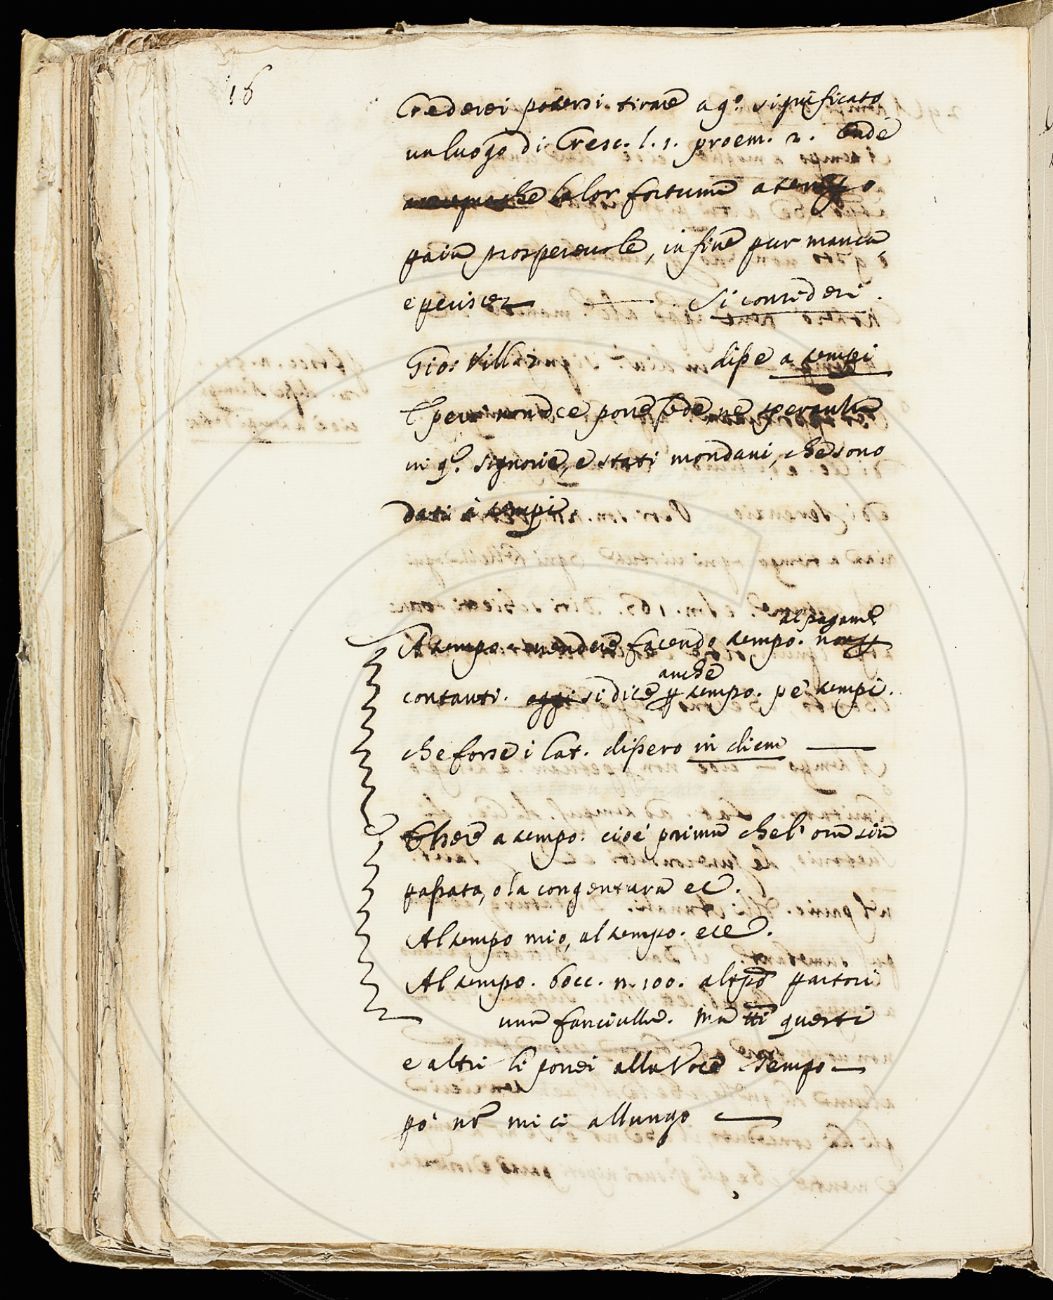 16
Crederei potersi tirare a q.º significato
un luogo di Cresc. l. 1. proem. 2. Onde
lor fortuna a tempo
paia prosperevole, in fine pur manca,
e perisce Si consideri.
Gio: Vill. disse a tempi
E però non dee porre fede ne
in q.e signorie, e stati mondani, che sono
dati a tempi
al pagam.º
A tempo. vendere facendo tempo. non p
anche
contanti. oggi si dice p tempo. pe' tempi.
che forse i Lat. dissero in diem
a tempo. cioè prima che l'ora sia
passata, o la congentura ec.
Al tempo mio, al tempo. ecc.
Al tempo. bocc. n. 100. al tpō partorì
una fanciulla. Ma tti questi
e altri li porrei alla Voce Tempo
pò nō mi ci allungo